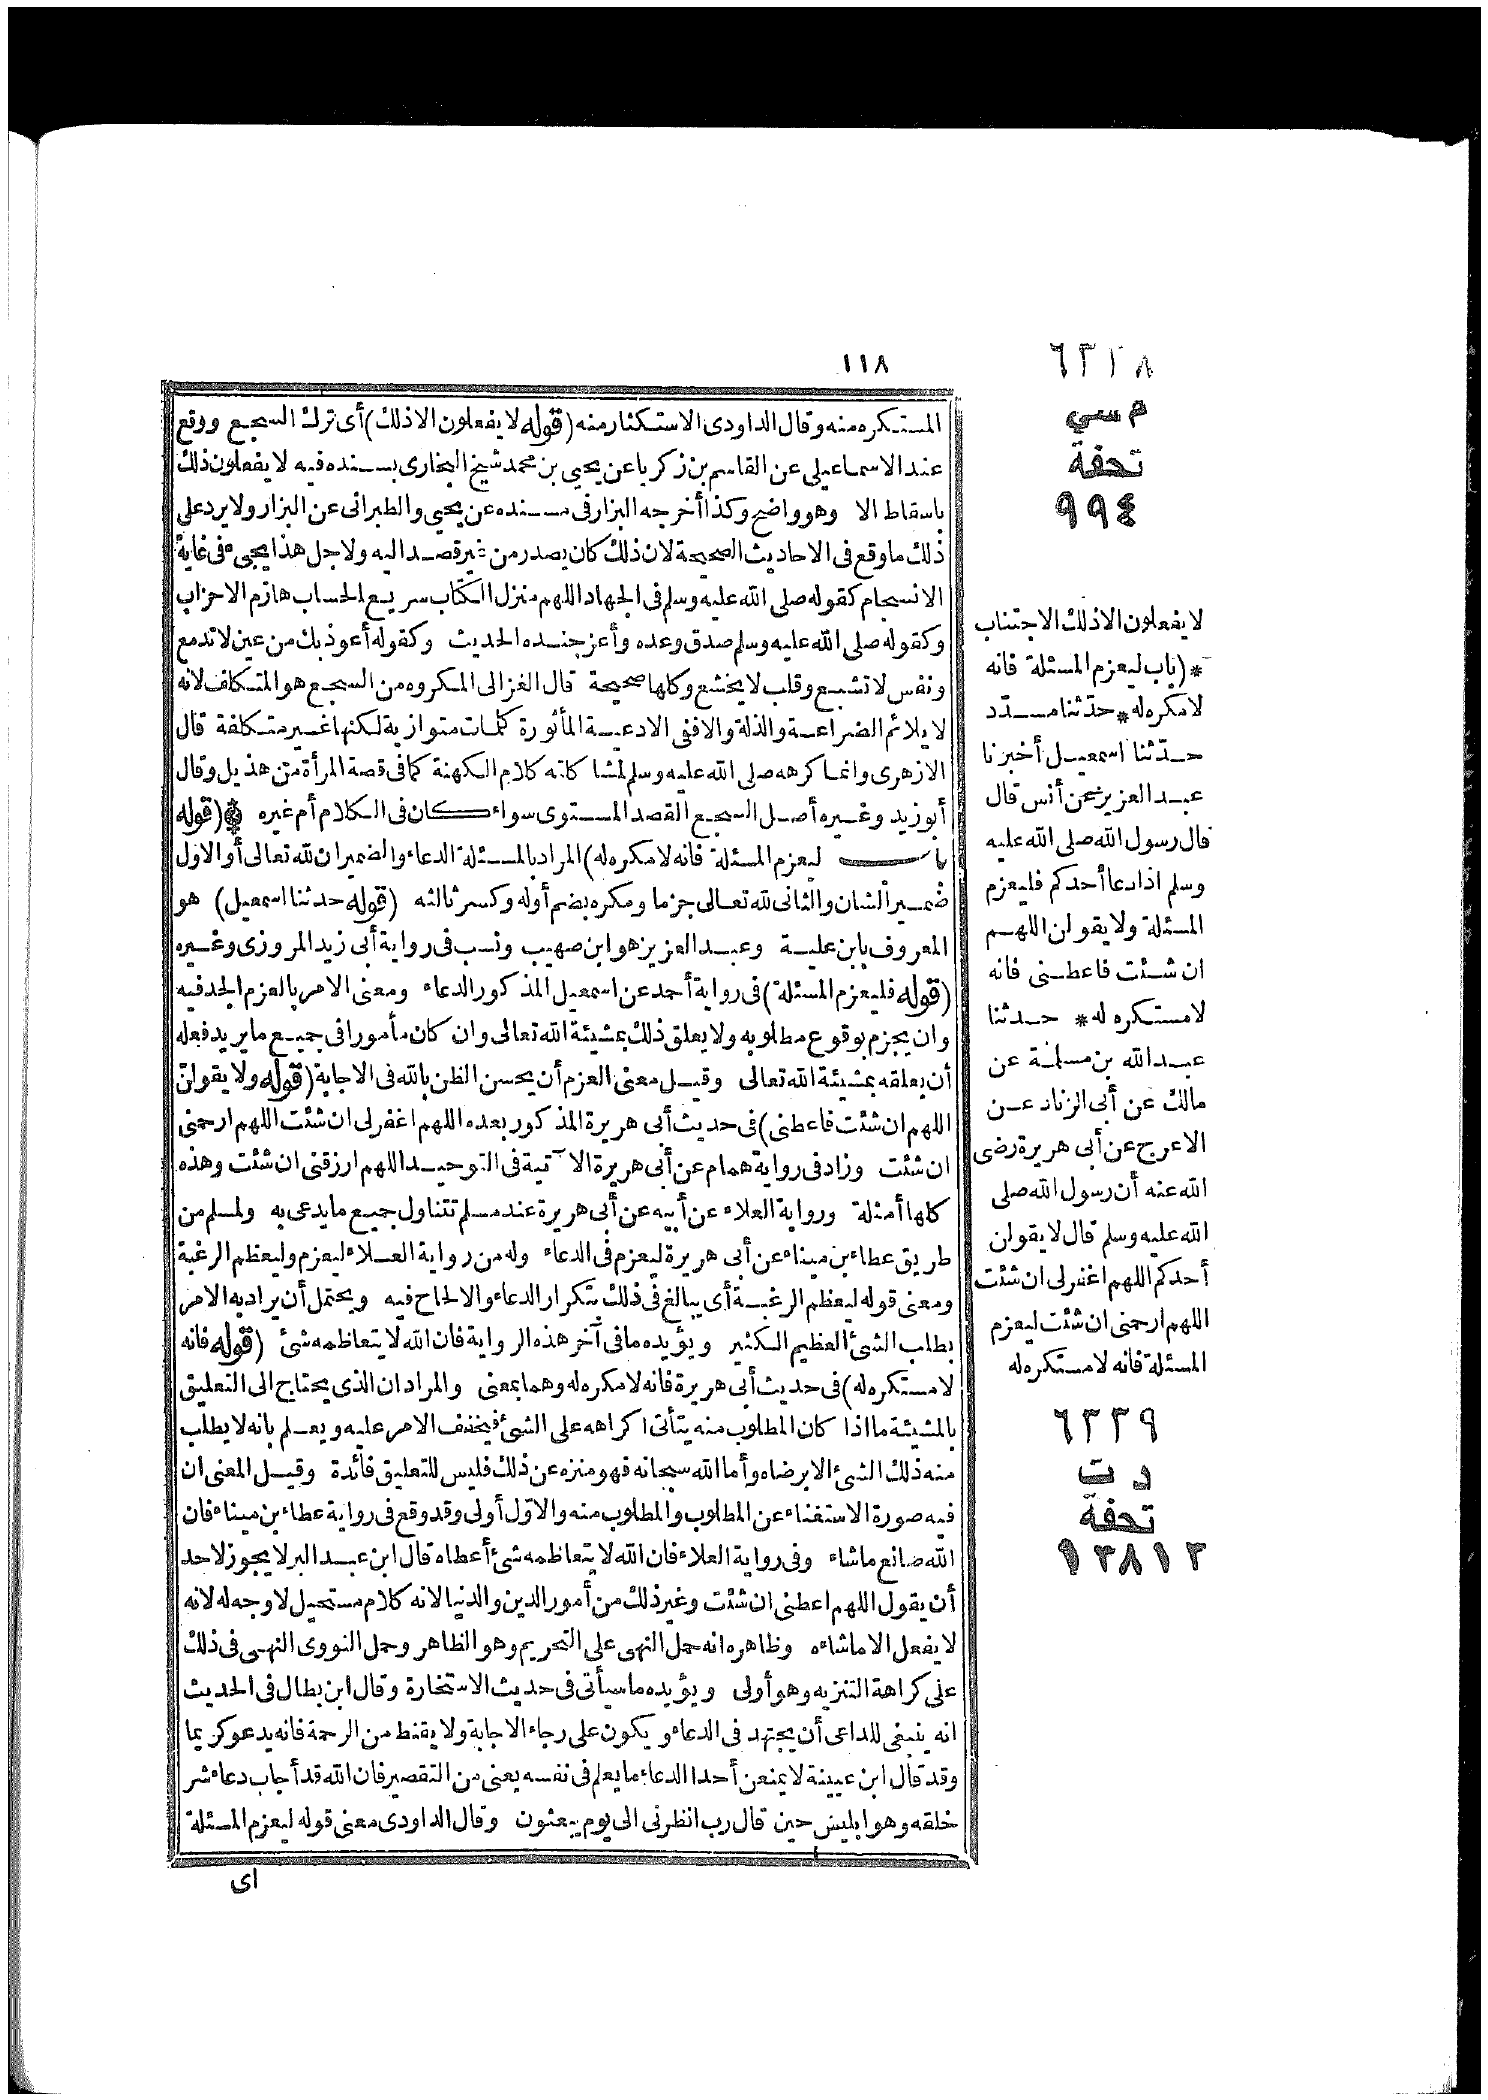 ١١٨
المستكره منه وقال الداودى الاستكثار منه (قوله لا يفعلون الا ذلك) أى ترك السجع ووقع
عند الاسماعيلى عن القاسم بن زكريا عن يحيى بن محمد شيخ البخارى بسنده فيه لا يفعلون ذلك
باسقاط الا وهو واضح وكذا أخرجه البزار فى مسنده عن يحيى والطبرانى عن البزار ولا يرد على
ذلك ما وقع فى الاحاديث الصحيحة لان ذلك كان يصدر من غير قصد اليه ولاجل هذا يجىء فى غاية
الانسجام كقوله صلى الله عليه وسلم فى الجهاد اللهم منزل الكتاب سريع الحساب هازم الاحزاب
وكقوله صلى الله عليه وسلم صدق وعده وأعز جنده الحديث وكقوله أعوذ بك من عين لا تدمع
ونفس لا تشبع وقلب لا يخشع وكلها صحيحة قال الغزالى المكروه من السجع هو المتكلف لانه
لا يلائم الضراعة والذلة والا ففى الادعية المأثورة كلمات متوازية لكنها غير متكلفة قال
الازهرى وانما كرهه صلى الله عليه وسلم لمشاكلته كلام الكهنة كما فى قصة المرأة من هذيل وقال
أبو زيد وغيره أصل السجع القصد المستوى سواء كان فى الكلام أم غيره * (قوله
باب ليعزم المسئلة فانه لا مكره له) المراد بالمسئلة الدعاء والضميران لله تعالى أو الاول
ضمير الشان والثانى لله تعالى جزما ومكره بضم أوله وكسر ثالثه (قوله حدثنا اسمعيل) هو
المعروف بابن علية وعبد العزيز هو ابن صهيب ونسب فى رواية أبى زيد المروزى وغيره
(قوله فليعزم المسئلة) فى رواية أحمد عن اسمعيل المذكور الدعاء ومعنى الامر بالعزم الجد فيه
وان يجزم بوقوع مطلوبه ولا يعلق ذلك بمشيئة الله تعالى وان كان مأمورا فى جميع ما يريد فعله
أن يعلقه بمشيئة الله تعالى وقيل معنى العزم أن يحسن الظن بالله فى الاجابة (قوله ولا يقولن
اللهم ان شئت فاعطنى) فى حديث أبى هريرة المذكور بعده اللهم اغفر لى ان شئت اللهم ارحمنى
ان شئت وزاد فى رواية همام عن أبى هريرة الآتية فى التوحيد اللهم ارزقنى ان شئت وهذه
كلها أمثلة ورواية العلاء عن أبيه عن أبى هريرة عند مسلم تتناول جميع ما يدعى به ولمسلم من
طريق عطاء بن ميناء عن أبى هريرة ليعزم فى الدعاء وله من رواية العلاء ليعزم وليعظم الرغبة
ومعنى قوله ليعظم الرغبة أى يبالغ فى ذلك بتكرار الدعاء والالحاح فيه ويحتمل أن يراد به الامر
بطلب الشئ العظيم الكثير ويؤيده ما فى آخر هذه الرواية فان الله لا يتعاظمه شئ (قوله فانه
لا مستكره له) فى حديث أبى هريرة فانه لا مكره له وهما بمعنى والمراد ان الذى يحتاج الى التعليق
بالمشيئة ما اذا كان المطلوب منه يتأتى اكراهه على الشئ فيخفف الامر عليه ويعلم بانه لا يطلب
منه ذلك الشئ الا برضاه وأما الله سبحانه فهو منزه عن ذلك فليس للتعليق فائدة وقيل المعنى ان
فيه صورة الاستغناء عن المطلوب والمطلوب منه والاول أولى وقد وقع فى رواية عطاء بن ميناء فان
الله صانع ما شاء وفى رواية العلاء فان الله لا يتعاظمه شئ أعطاه قال ابن عبد البر لا يجوز لاحد
أن يقول اللهم اعطنى ان شئت وغير ذلك من أمور الدين والدنيا لانه كلام مستحيل لا وجه له لانه
لا يفعل الا ما شاءه وظاهره انه حمل النهى على التحريم وهو الظاهر وحمل النووى النهى فى ذلك
على كراهة التنزيه وهو أولى ويؤيده ما سيأتى فى حديث الاستخارة وقال ابن بطال فى الحديث
انه ينبغى للداعى أن يجتهد فى الدعاء ويكون على رجاء الاجابة ولا يقنط من الرحمة فانه يدعو كريما
وقد قال ابن عيينة لا يمنعن أحدا الدعاء ما يعلم فى نفسه يعنى من التقصير فان الله قد أجاب دعاء شر
خلقه وهو ابليس حين قال رب انظرنى الى يوم يبعثون وقال الداودى معنى قوله ليعزم المسئلة
اى
٦٣٣٨
م سي
تحفة
٩٩٤
لا يفعلون الا ذلك الاجتناب
*(باب ليعزم المسئلة فانه
لا مكره له* حدثنا مسدد
حدثنا اسمعيل أخبرنا
عبد العزيز عن أنس قال
قال رسول الله صلى الله عليه
وسلم اذا دعا أحدكم فليعزم
المسئلة ولا يقولن اللهم
ان شئت فاعطنى فانه
لا مستكره له* حدثنا
عبد الله بن مسلمة عن
مالك عن أبى الزناد عن
الاعرج عن أبى هريرة رضى
الله عنه أن رسول الله صلى
الله عليه وسلم قال لا يقولن
أحدكم اللهم اغفر لى ان شئت
اللهم ارحمنى ان شئت ليعزم
المسئلة فانه لا مستكره له
٦٣٣٩
د ت
تحفة
١٣٨١٣